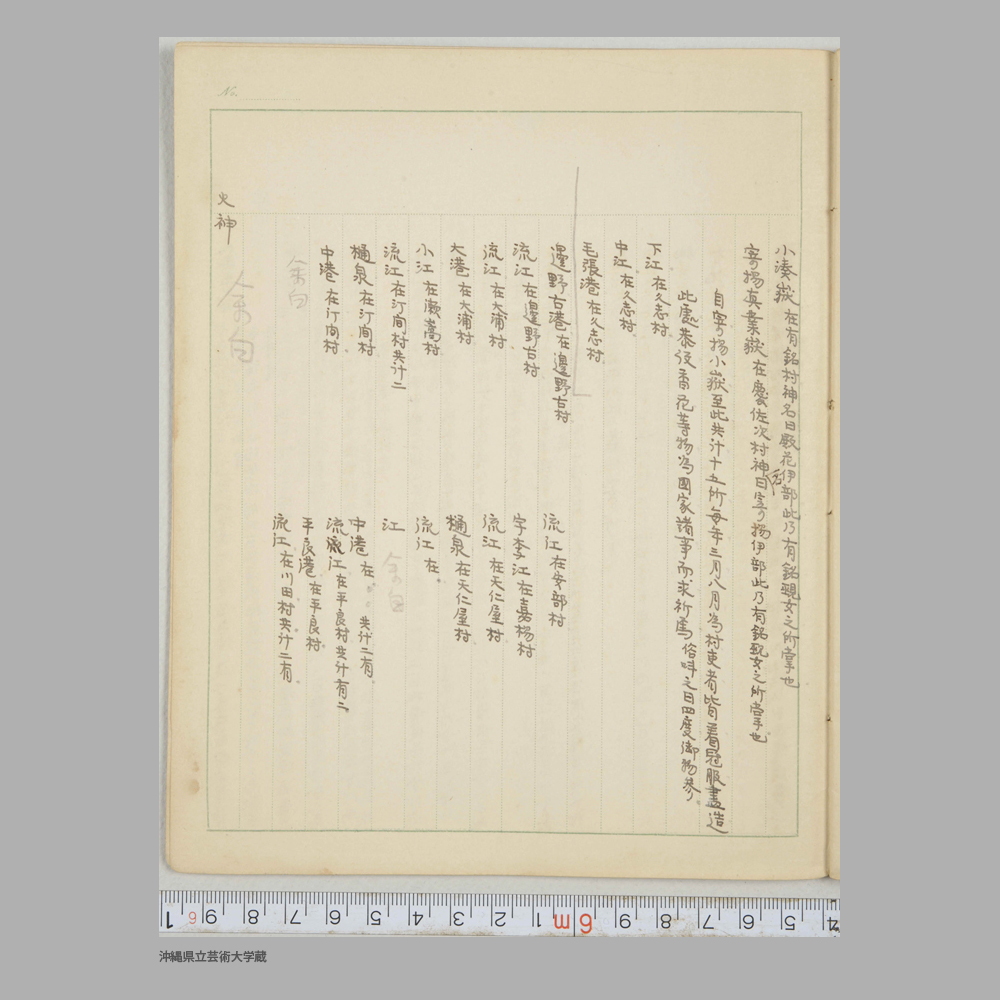 小湊嶽 在有銘村神名曰殿花伊部此乃有銘親女之所掌也
寄揚真業嶽 在慶佐次村神名曰寄揚伊部此乃有銘親女之所掌也
自寄揚小嶽至此共計十五所毎年三月八月為村吏者皆着冠服盡造
此處恭設香花等物為國家諸事而求祈焉俗呌之曰四度御物参
下江 在久志村
中江 在久志村
毛張港 在久志村
邊野古港 在邊野古村
流江 在邊野古村
流江 在大浦村
大港 在大浦村
小江 在瀬嵩村
流江 在汀间村共计二
樋泉 在汀间村
中港 在汀间村
余白
流江 在安部村
字李江 在嘉楊村
流江 在天仁屋村
樋泉 在天仁屋村
流江 在〃
江 余白
中港 在〃〃 共计二有
流江 在平良村共计有二
平良港 在平良村
流江 在川田村共计二有
火神
余白
No.
1 6 9 8 7 6 5 4 3 2 1 6m 9 8 7 6 5 4
沖縄県立芸術大学蔵